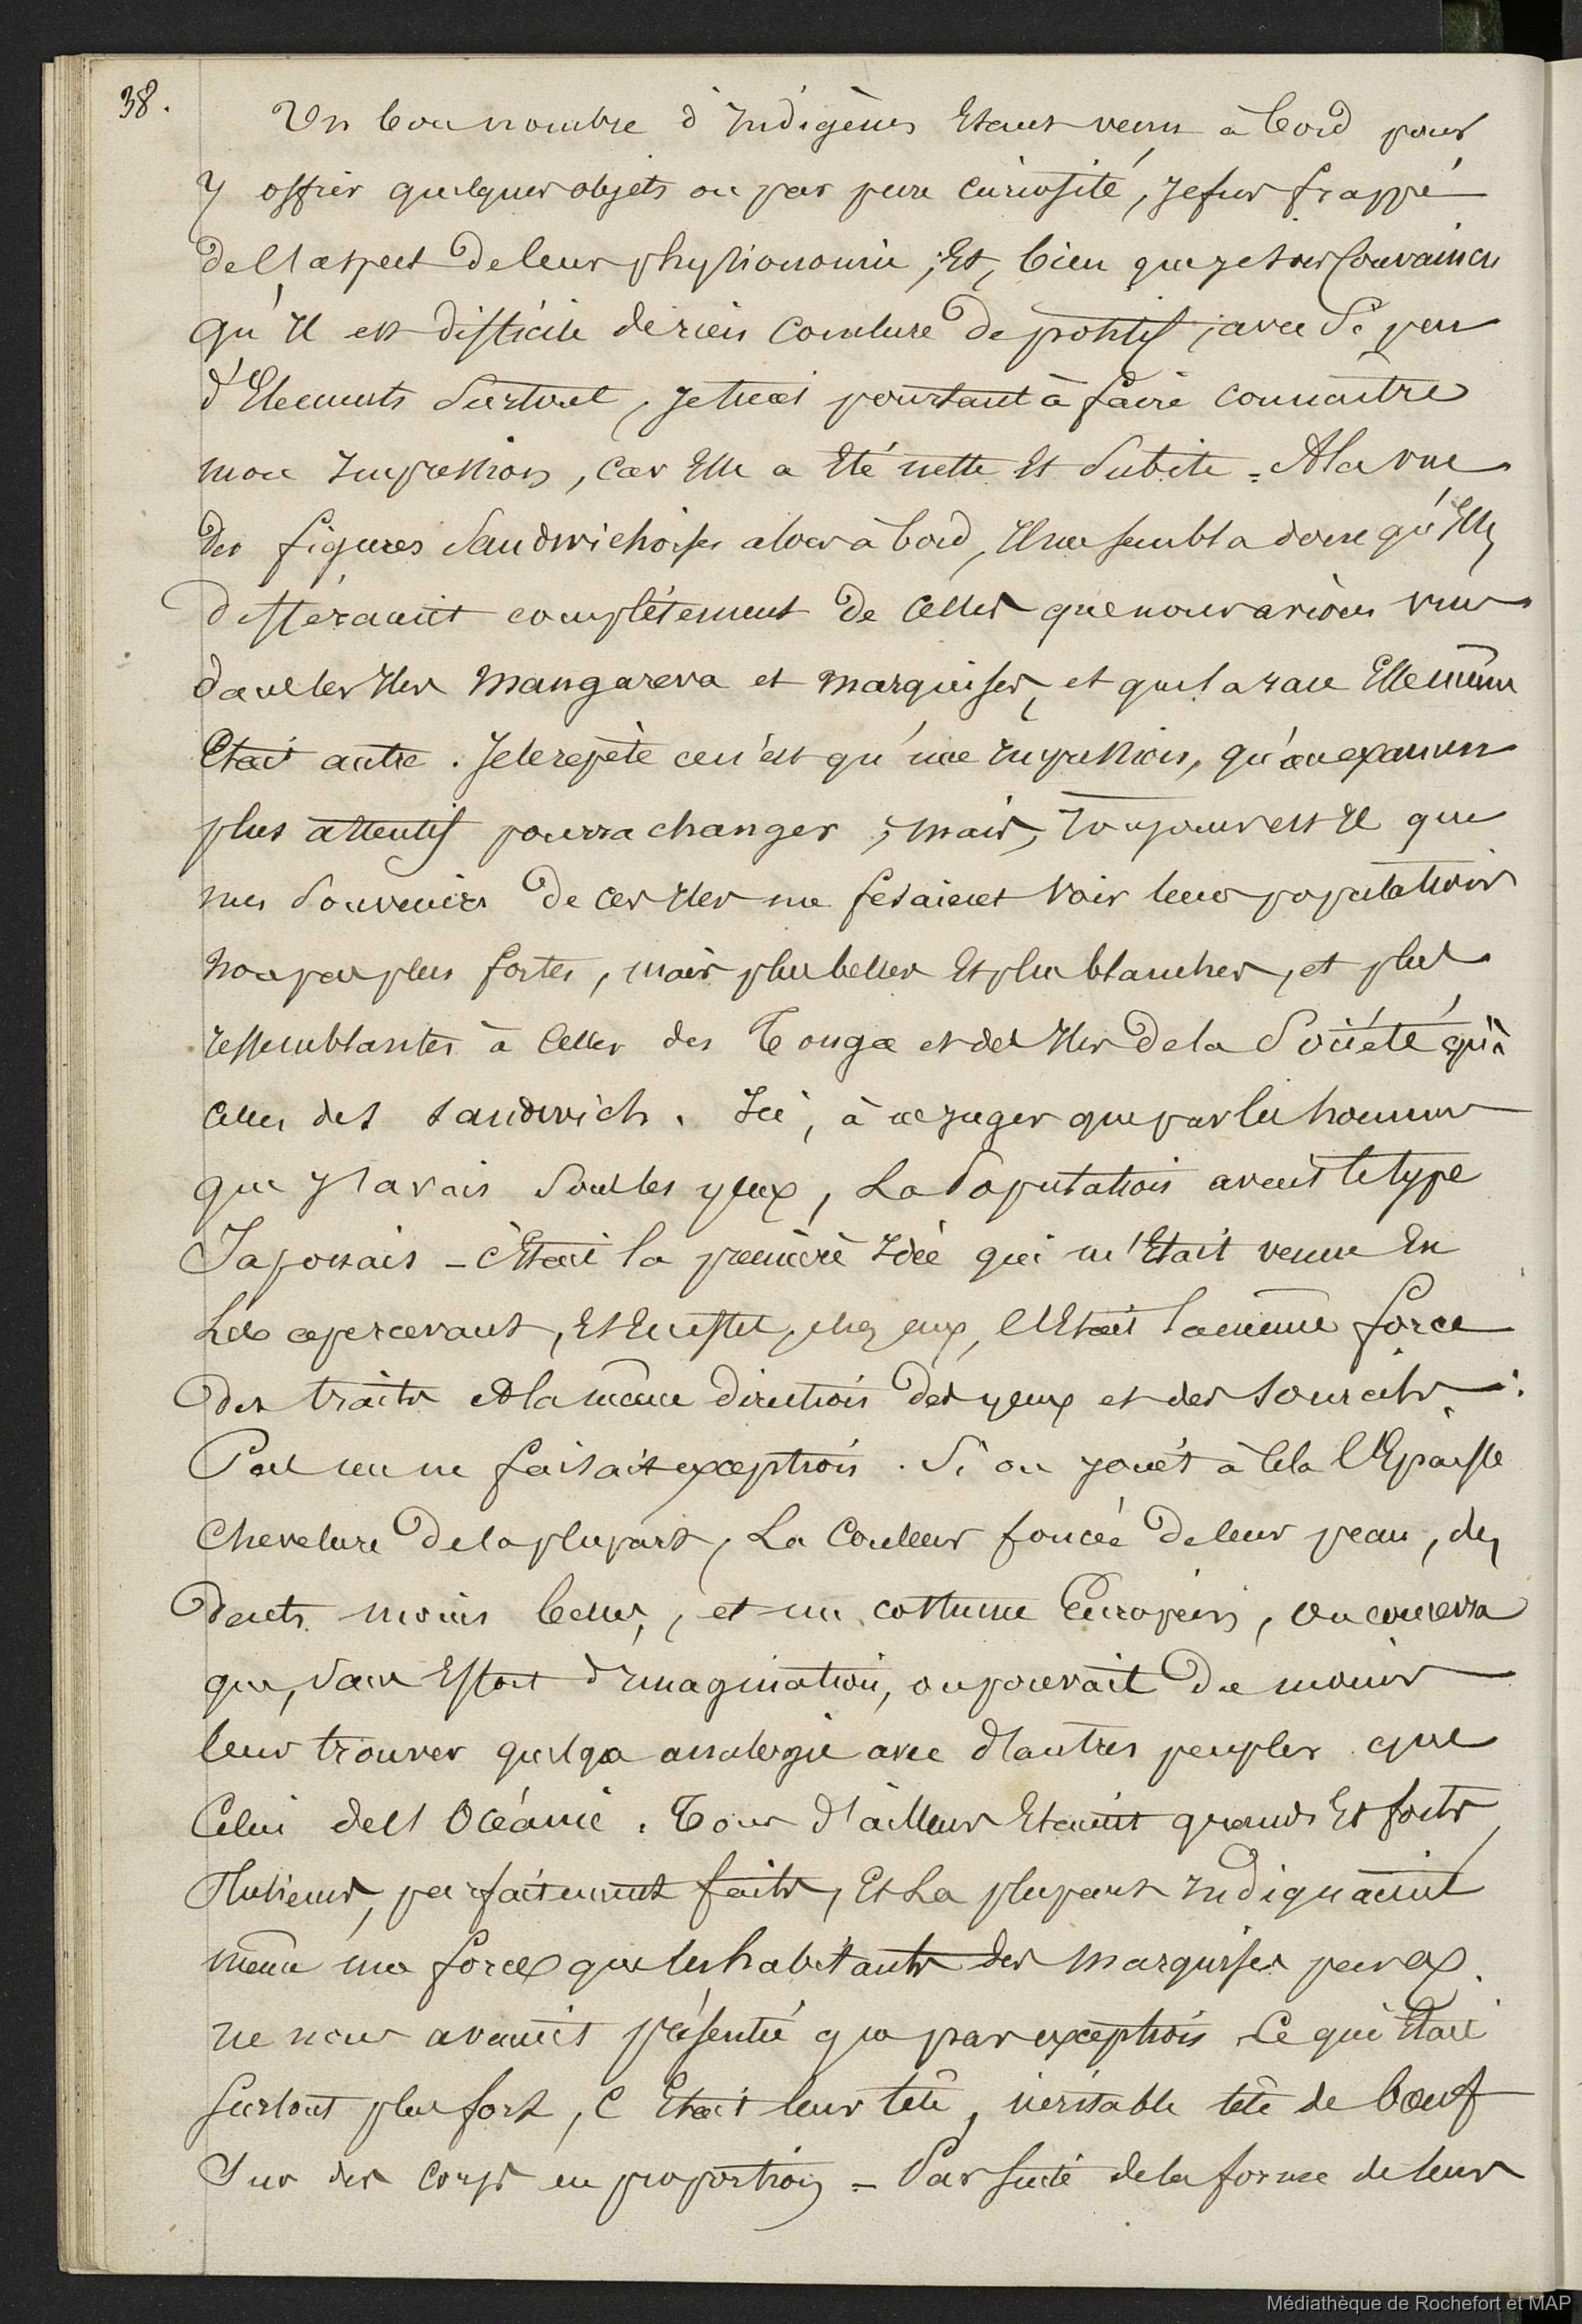 38.
Un bon nombre d'Indigènes Etant venu à bord pour
y offrir quelques objets ou par pure curiosité, je fus frappé
de l'aspect de leur physionomie ; Et, bien que je sois convaincu
qu'Il est difficile de rien conclure de positif, avec si peu
d'Elements surtout, je tiens pourtant à faire connaitre
mon Impression, car Elle a Eté nette Et subite = A la vue
des figures Sandwichoises alors à bord, Il me sembla donc qu'Elles
différaient complètement de celles que nous avions vues
dans les Iles Mangareva et Marquises, et que la race Elle même
Etait autre. Je le repète ce n'est qu'une Impression, qu'un examen
plus attentif pourra changer ; mais, toujours est Il que
mes souvenirs de ces Iles me fesaient voir leurs populations
non pas plus fortes, mais plus belles Et plus blanches, et plus
ressemblantes à celles des Tonga et des Iles de la Société qu'à
celles des Sandwich. Ici, à ne juger que par les hommes
que j'avais sous les yeux, La Population avait le type
Japonais - c'Etait la première Idée qui m'Etait venue En
Les apercevant, Et En effet, chez eux, c'Etait la même force
des traits Et la même direction des yeux et des sourcils :
Pas un ne faisait exception. Si on joint à cela l'Epaisse
chevelure de la plupart, La couleur foncée de leur peau, des
dents moins belles, et un costume Européen, on concevra
que, sans Effort d'Imagination, on pouvait du moins
leur trouver quelque analogie avec d'autres peuples que
celui de l'Océanie. Tous d'ailleurs Etaient grands Et forts,
Plusieurs, parfaitement faits, Et La plupart Indiquaient
même une force que les habitants des Marquises par ex.
ne nous avaient présenté que par exception. Ce qui Etait
surtout plus fort, c'Etait leur tête, véritable tête de bœuf
Sur des corps en proportion = Par suite de la forme de leurs
Médiathèque de Rochefort et MAP